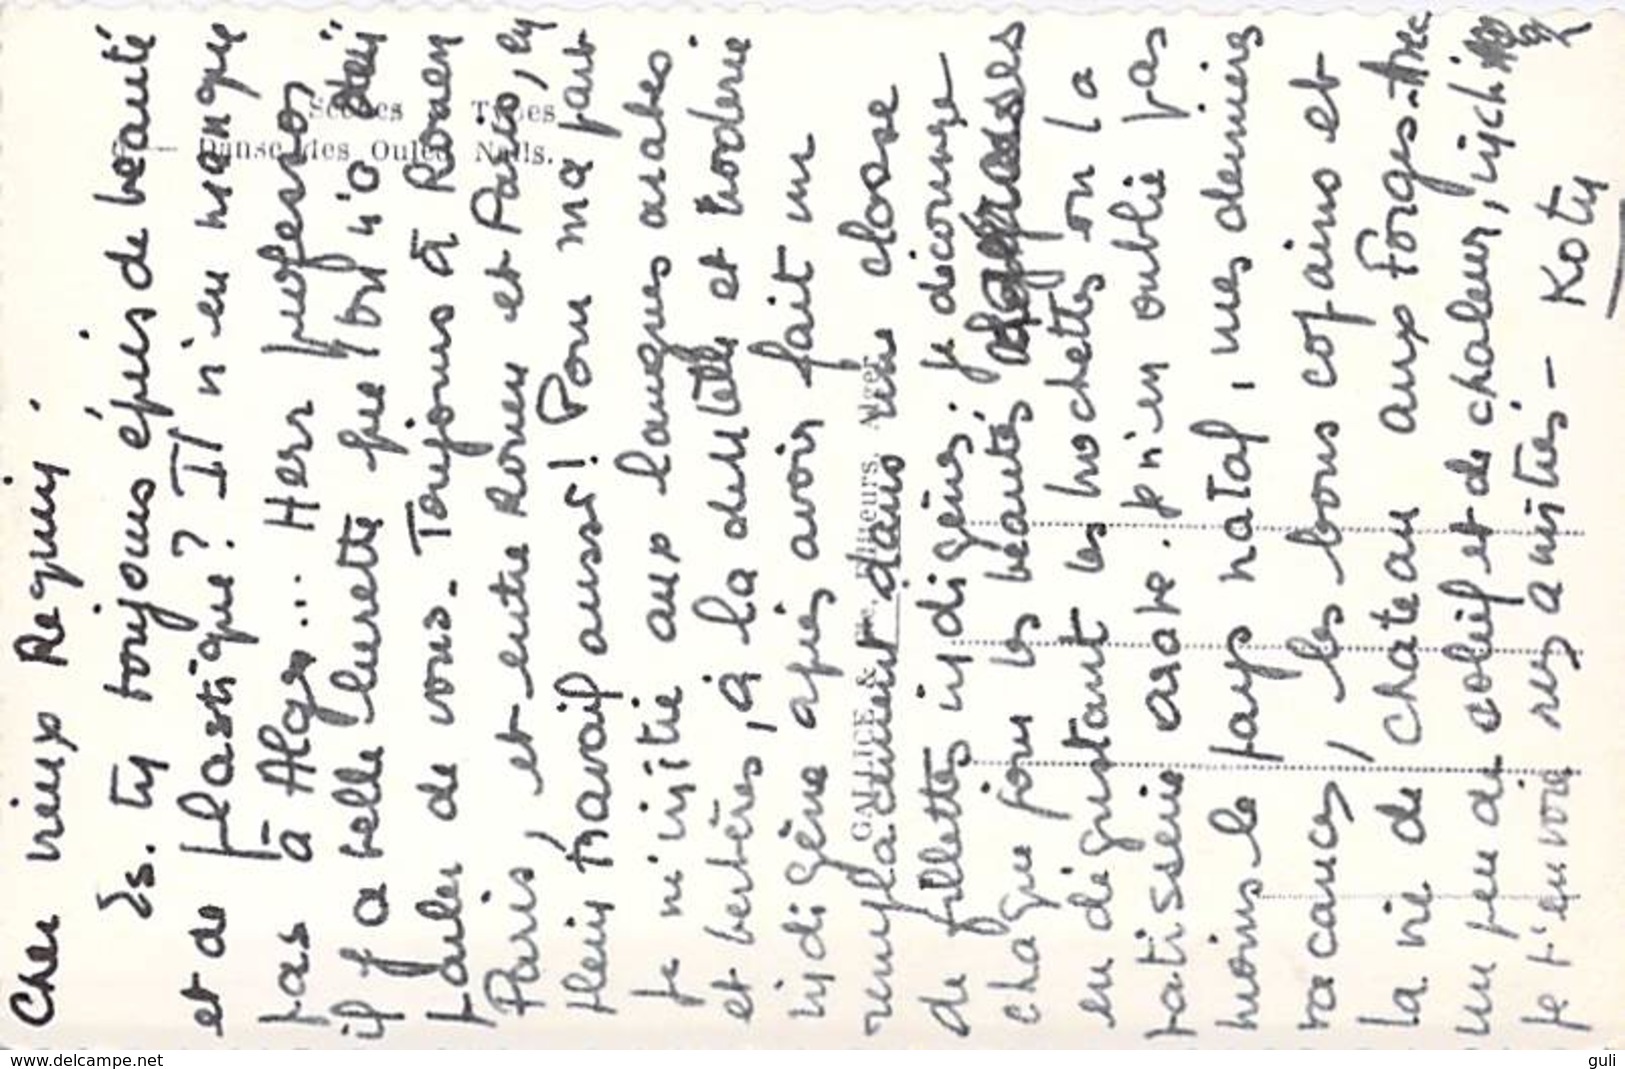 Cher vieux Requin,
Es-tu toujours épris de beauté
et de plastique ? Il n'en manque
pas à Alger... Herr professor
il y a belle lurette que je n'ai ouï
parler de vous. Toujours à Rouen
Paris, et entre Rouen et Paris, en
plein travail aussi ! Pour ma part
je m'initie aux langues arabes
et berbères, à la dentelle et broderie
indigène après avoir fait un
remplacement dans une classe
de fillettes indigènes; je découvre
chaque jour les beautés
en dégustant les brochettes ou la
patisserie arabe. Je n'en oublie pas
moins le pays natal, mes dernières
vacances, les bons copains et
la vie de chateau aux Forges.
un peu de soleil et de chaleur,
je t'envoie mes amitiés - Koty
Scènes Types
6 — Danse des Ouled Naïls.
GALLICE & Cie, Editeurs, Alger
www.delcampe.net
guli